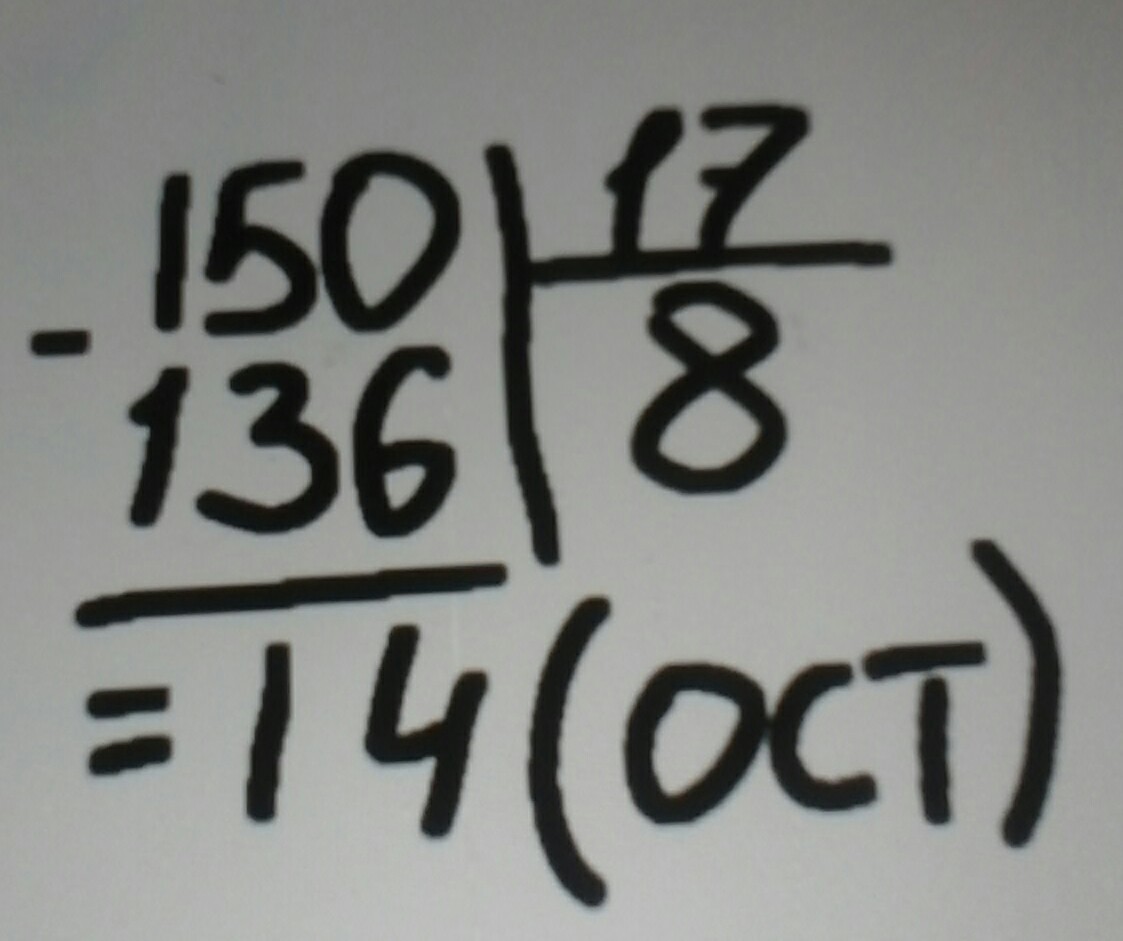 150 17
- 8
136
=14 (ОСТ)